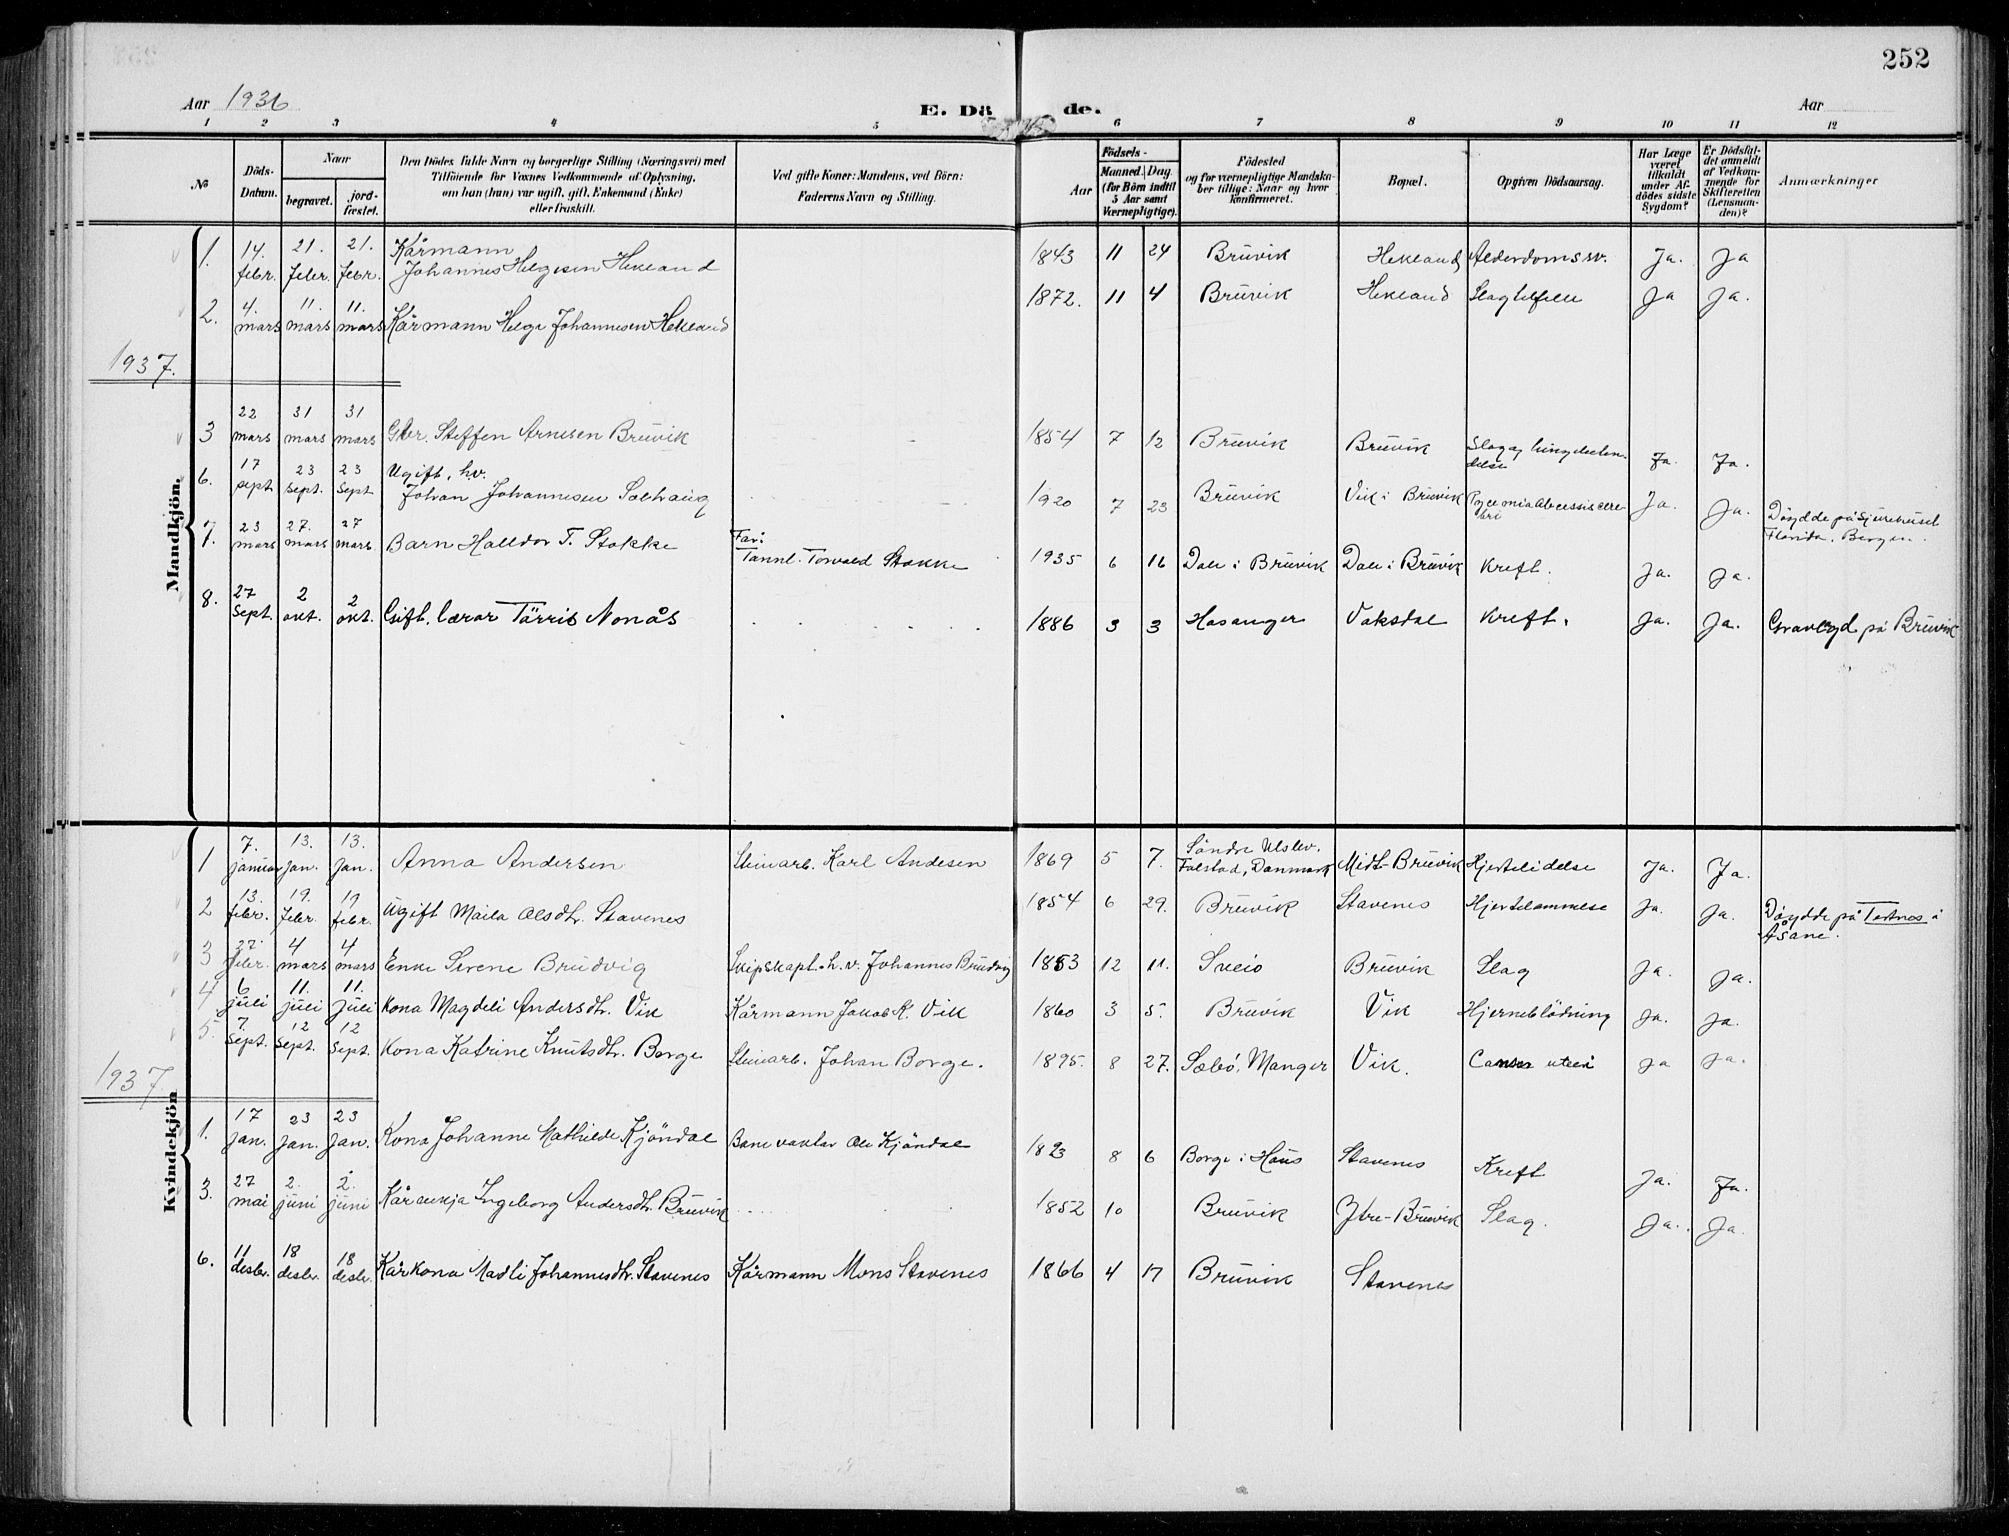 252
Aar 1936
E. Dö de.
Aar
1 2 3 4 5 6 7 8 9 10 11 12
No
Döds-Datum.
Naar
begravet.
jord-fæstet.
Den Dödes fulde Navn og borgerlige Stilling (Næringsvei) med
Tilföiende for Voxnes Vedkommende af Oplysning,
om han (hun) var ugift, gift, Enkemand (Enke)
eller fraskilt.
Ved gifte Koner: Mandens, ved Börn:
Faderens Navn og Stilling.
Aar
Födsels-
Maaned. Dag
(for Börn indtil
5 Aar samt
Værnepligtige).
Födested
og for værnepligtige Mandska-
ber tillige: Naar og hvor
konfirmeret.
Bopæl.
Opgiven Dödsaarsag.
Har Læge
været
tilkaldt
under Af-
dödes sidste
Sygdom?
Er Dödsfal-
det anmeldt
af Vedkom-
mende for
Skifteretten
(Lensman-
den)?
Anmærkninger
Mandkjön.
1. 14. febr. 21. febr. 21. febr. Kårmann Johannes Helgesen Hekland 1843 11 24 Bruvik Hekland Alderdomssv. Ja. Ja
2. 4. mars 11. mars 11. mars Kårmann Helge Johannesen Hekland 1872. 11 4 Bruvik Hekland Slagtilfelle Ja Ja.
1937.
3 22 mars 31 mars 31 mars Gbr. Steffen Arnesen Bruvik 1854 7 12 Bruvik Bruvik Slag og Ja. Ja.
6. 17 sept 23 sept. 23 sept Ugift, hv. Johan Johannesen Solhaug 1920 7 23 Bruvik Vik i Bruvik Ja. Ja. Döydde på sjukehuset Florida, Bergen.
7. 23 mars 27. mars 27 mars. Barn Halldor T. Stokke Far: Tannl. Torvald Stokke 1935 6 16 Dale i Bruvik Dale i Bruvik Kreft. Ja. Ja.
8. 27 sept. 2 okt. 2 okt. Gift, lærar Törris Nonås 1886 3 3 Hosanger Vaksdal Kreft. Ja. Ja. Gravlagd på Bruvik
Kvindekjön
1 7. januar 13. jan. 13. jan. Anna Andersen Steinarb. Karl Andesen 1869 5 7. Söndre Ulslev, Falstad, Danmark Midt-Bruvik Hjertelidelse Ja. Ja.
2 13. febr. 19. febr. 19 febr. Ugift Maila Olsdtr. Stavenes 1854 6 29. Bruvik Stavenes Hjertelammelse Ja. Ja. Döydde på Tertnes i Åsane.
3 27. febr. 4 mars 4 mars Enke Serene Brudvig Skipskapt. h.v. Johannes Brudvig 1853 12 11. Sveio Bruvik Slag Ja. Ja.
4 6 juli 11. juli 11. juli Kona Magdeli Andersdtr. Vik Kårmann Jakob K. Vik 1860 3 5. Bruvik Vik Hjerneblödning Ja. Ja.
5. 7. sept. 12 sept. 12 sept. Kona Katrine Knutsdtr. Borge Steinarb. Johan Borge. 1895. 8 27. Sæbö, Manger Vik. Cancer uteri Ja Ja.
1937.
1. 17 jan. 23 jan. 23 jan. Kona Johanne Mathilde Kjöndal Banevaktar Ole Kjöndal 8 6 Borge i Haus Stavenes Kreft Ja. Ja.
3. 27 mai 2. juni 2. juni Kårenkja Ingeborg Andersdtr. Bruvik 1852 10 Bruvik Ytre-Bruvik Slag. Ja. Ja.
6. 11 desbr. 18 desbr. 18 desbr. Kårkona Madli Johannesdtr. Stavenes Kårmann Mons Stavenes 1866 4 17 Bruvik Stavenes